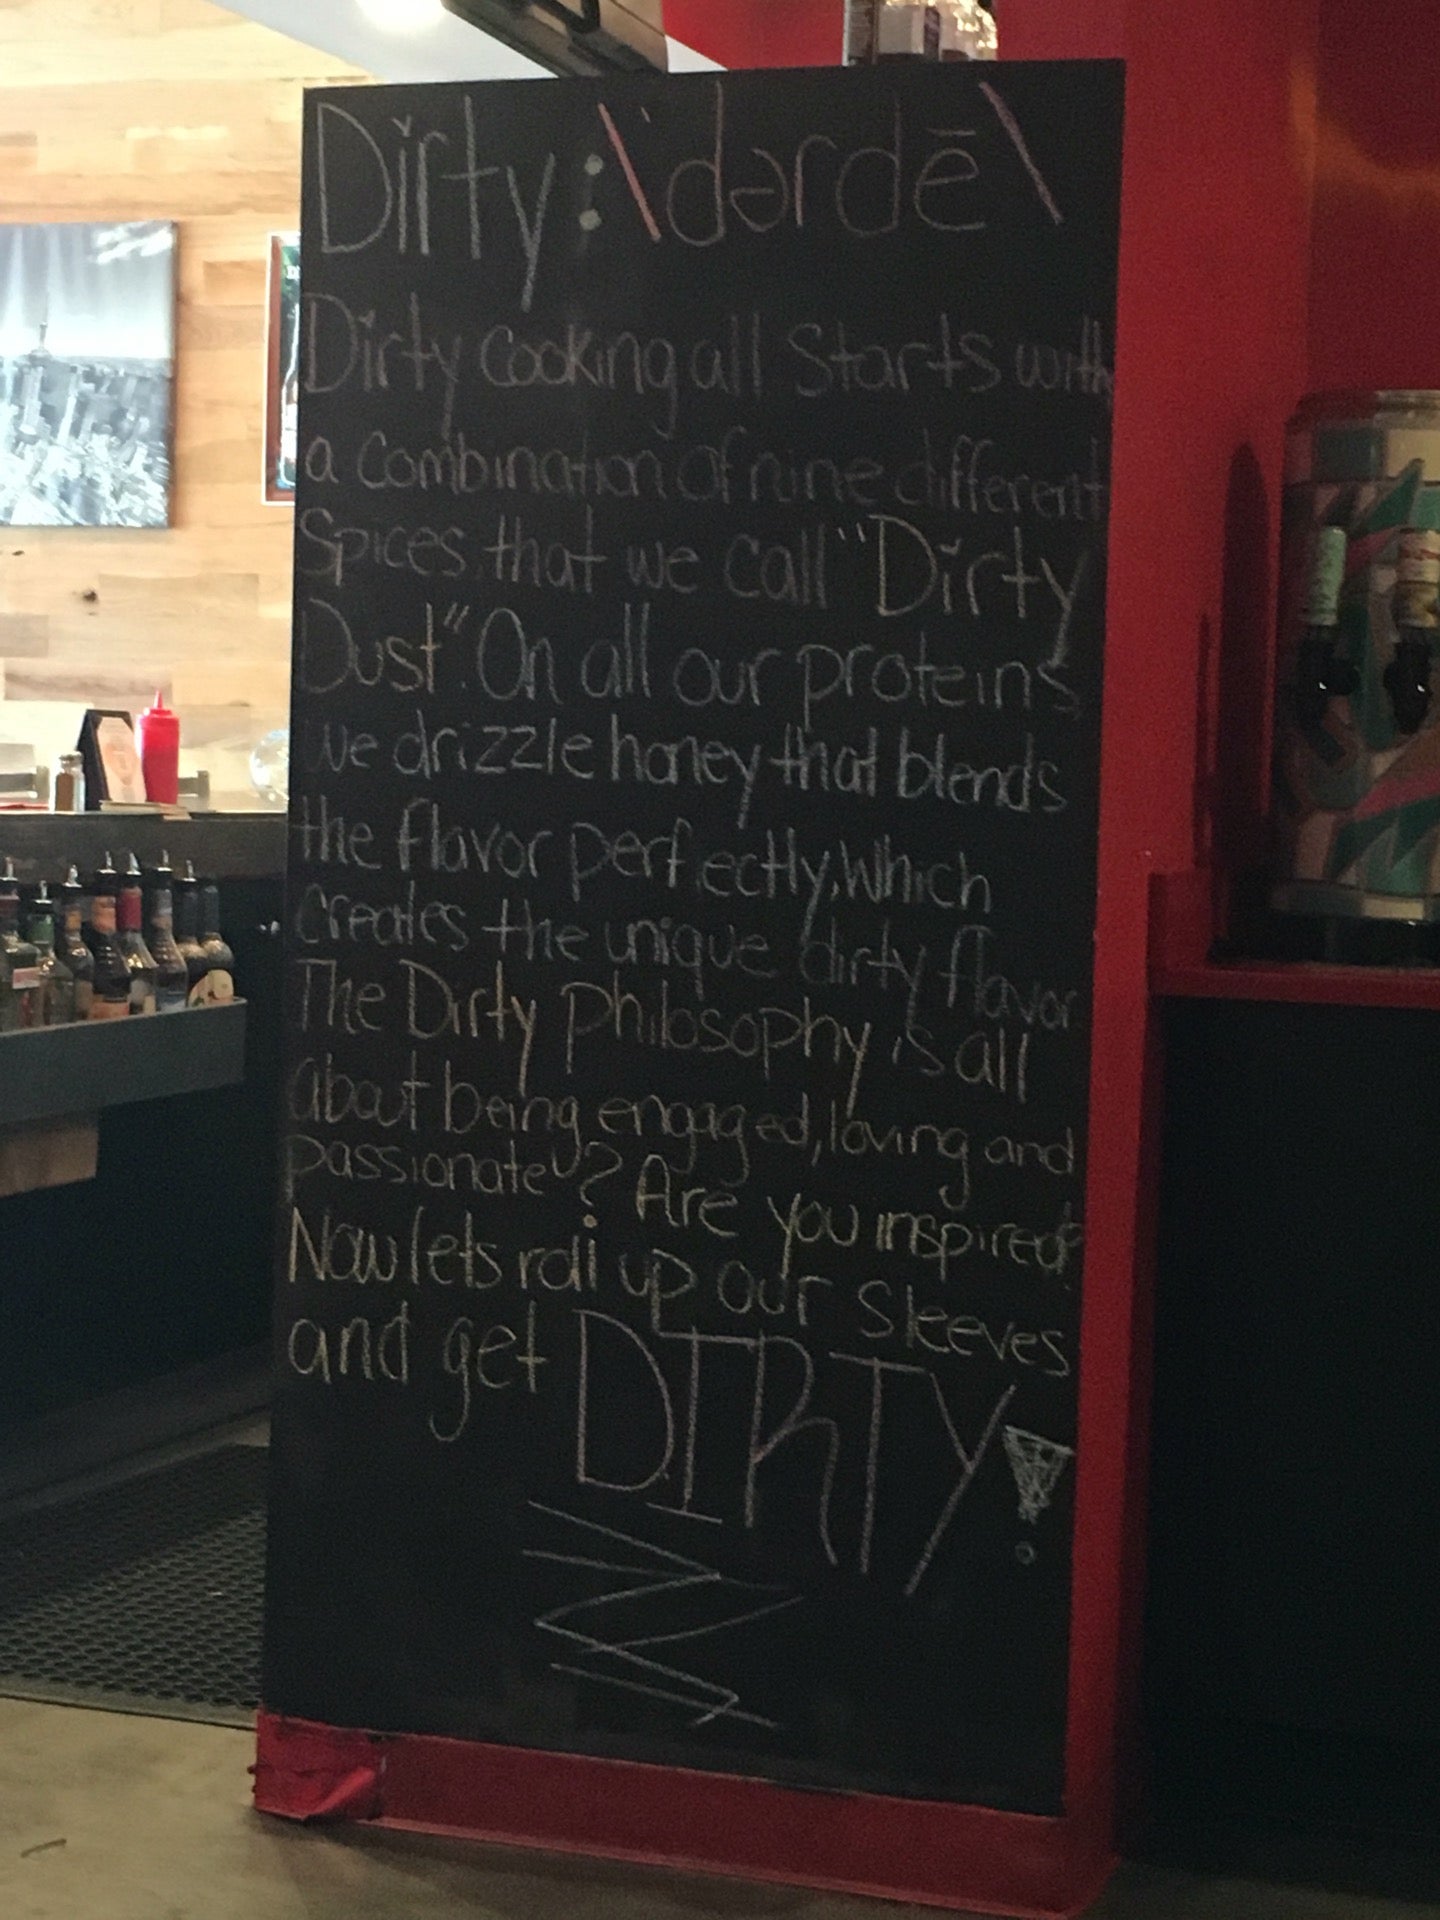 Dirty:\'dərdē\
Dirty Cooking all Starts with
a Combination Of nine different
Spices that we call "Dirty
Dust". On all our proteins
we drizzle honey that blends
the flavor perfectly, Which
creates the unique dirty flavor
The Dirty Philosophy is all
about being engaged, loving and
passionate? Are you inspired?
Now lets roll up our Sleeves
and get DIRTY!